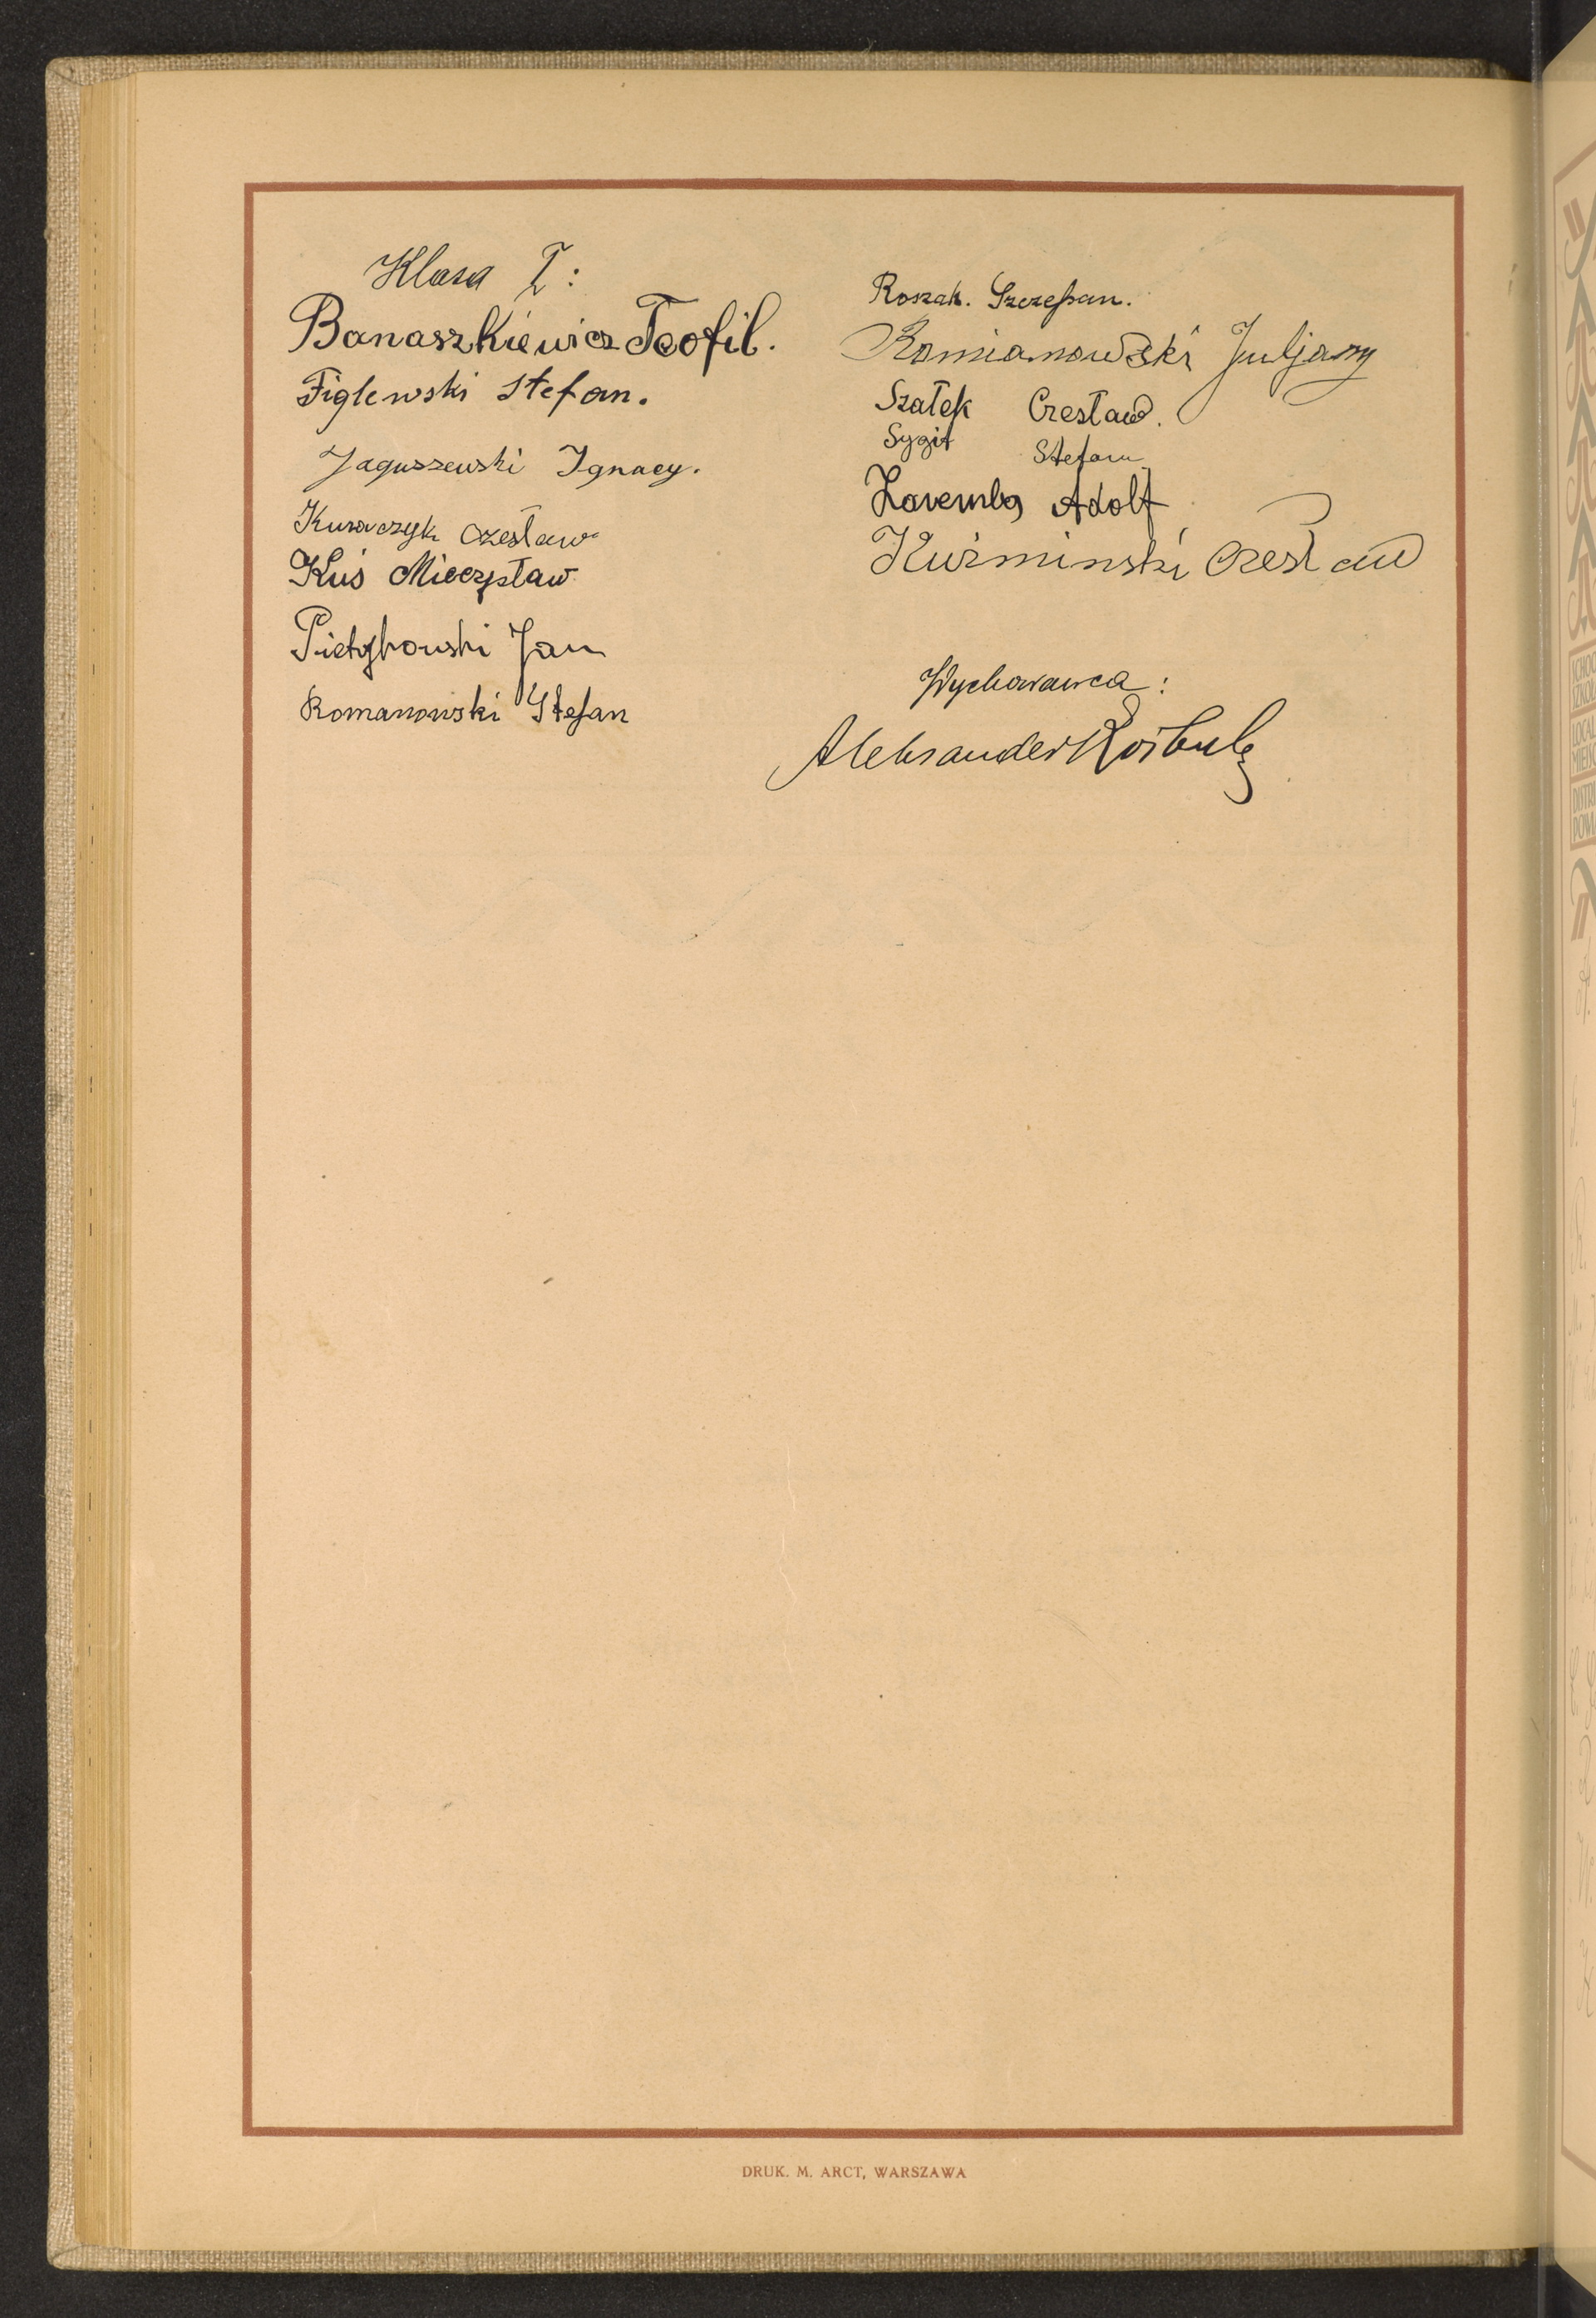 Klasa I:
Banaszkiewicz Teofil.
Figlewski Stefan.
Jaguszewski Ignacy.
Kurowczyk Czesław
Kuś Mieczysław
Jan
Romanowski Stefan
Roszak. Szczepan.
Romianowski Juljan
Szałek Czesław.
Sygit Stefan
Zaremba Adolf
Kuźminski Czesław
Wychowawca:
Aleksander
DRUK. M. ARCT, WARSZAWA